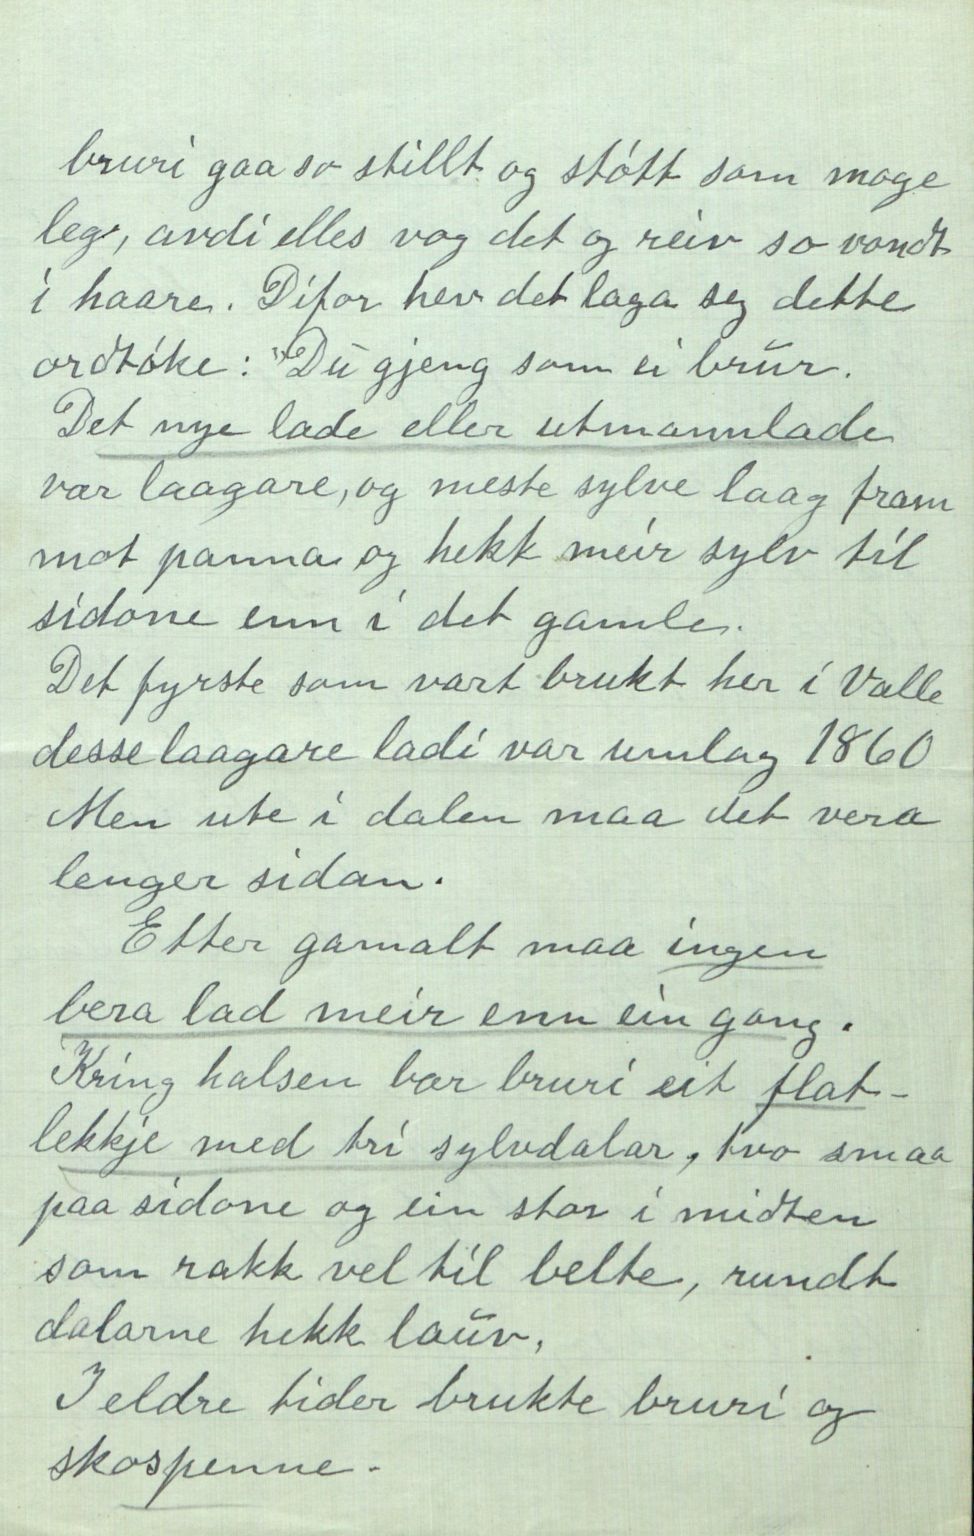 bruri gaa so stillt og støtt som moge
leg, avdi elles vog det og reiv so vondt
i haare. Difor hev det laga seg dette
ordtøke: "Du gjeng som ei brur.
Det nye lade eller utmannlade
var laagare, og meste sylve laag fram
mot panna og hekk meir sylv til
sidone enn i det gamle.
Det fyrste som vart brukt her i Valle
desse laagare ladi var umlag 1860
Men ute i dalen maa det vera
lenger sidan.
Etter gamalt maa ingen
bera lad meir enn ein gong.
Kring halsen bar bruri eit flat-
lekkje med tri sylvdalar, tvo smaa
paa sidone og ein stor i midten
som rakk vel til belte, rundt
dalarne hekk lauv,
I eldre tider brukte bruri og
skospenne.